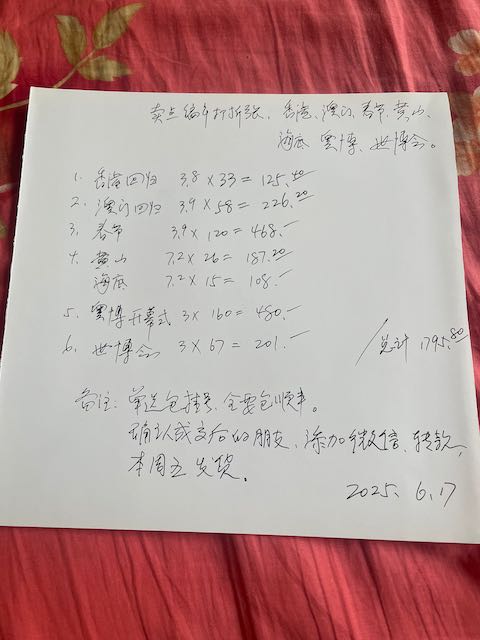 卖点编年打折张、香港、澳门、春节、黄山、
海底、奥博、世博会。
1. 香港回归 3.8 × 33 = 125.40
2. 澳门回归 3.9 × 58 = 226.20
3. 春节 3.9 × 120 = 468.-
4. 黄山 7.2 × 26 = 187.20
海底 7.2 × 15 = 108.-
5. 奥博开幕式 3 × 160 = 480.-
6. 世博会 3 × 67 = 201.-
总计 1795.80
备注: 单送包挂号、全要包顺丰。
确认成交后的朋友、添加微信、转款,
本周五发货。
2025. 6.17